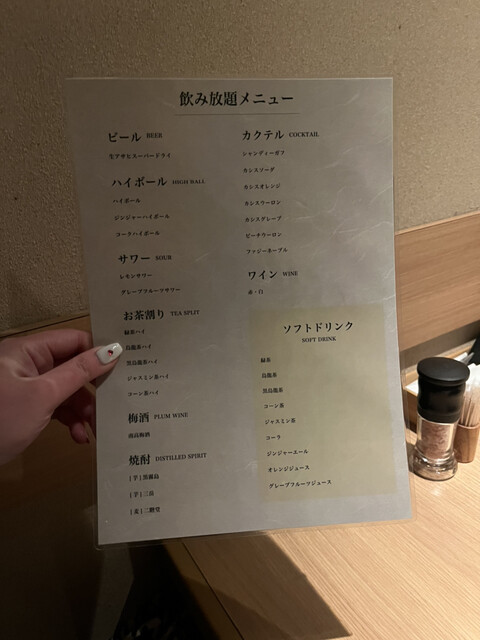 飲み放題メニュー
ビール BEER
生アサヒスーパードライ
ハイボール HIGH BALL
ハイボール
ジンジャーハイボール
コークハイボール
サワー SOUR
レモンサワー
グレープフルーツサワー
お茶割り TEA SPLIT
緑茶ハイ
烏龍茶ハイ
黒烏龍茶ハイ
ジャスミン茶ハイ
コーン茶ハイ
梅酒 PLUM WINE
南高梅酒
焼酎 DISTILLED SPIRIT
[芋]黒霧島
[芋]三岳
[麦]二階堂
カクテル COCKTAIL
シャンディーガフ
カシスソーダ
カシスオレンジ
カシスウーロン
カシスグレープ
ピーチウーロン
ファジーネーブル
ワイン WINE
赤・白
ソフトドリンク
SOFT DRINK
緑茶
烏龍茶
黒烏龍茶
コーン茶
ジャスミン茶
コーラ
ジンジャーエール
オレンジジュース
グレープフルーツジュース